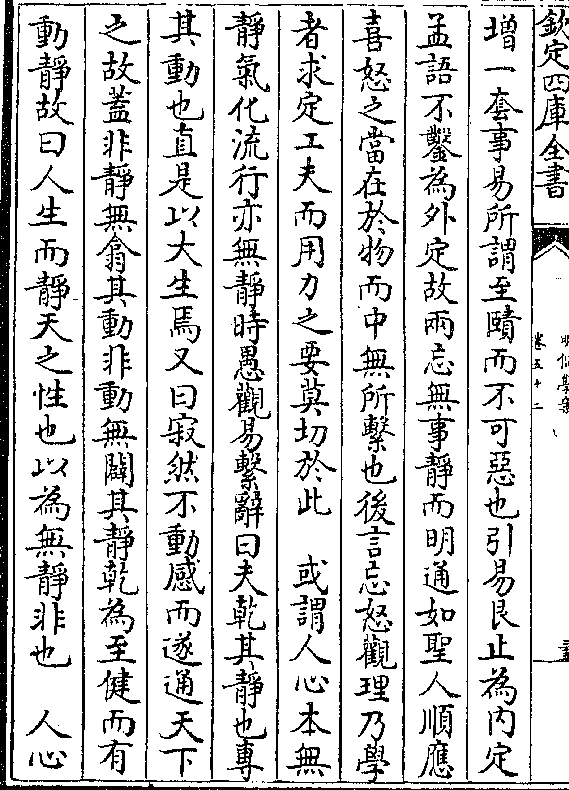 欽定四庫全書
明儒學案
卷五十二
增一套事易所謂至賾而不可惡也引易艮止為內定
孟語不鑿為外定故兩忘無事靜而明通如聖人順應
喜怒之當在於物而中無所繫也後言忘怒觀理乃學
者求定工夫而用力之要莫切於此　或謂人心本無
靜氣化流行亦無靜時愚觀易繫辭曰夫乾其靜也專
其動也直是以大生焉又曰寂然不動感而遂通天下
之故蓋非靜無翕其動非動無闢其靜乾為至健而有
動靜故曰人生而靜天之性也以為無靜非也　人心